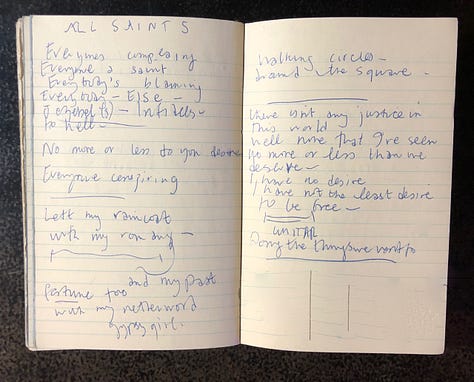 ALL SAINTS
Everyones complaining
Everyone a saint
Everybody's blaming
Everyone - Else -
Infidels -
to hell -
No more or less to you desire
Everyone conspiring
Left my raincoat
with my
and my past
Fortune too
with my
gypsy girl.
Walking circles -
around the square -
there isn't any justice in
This world
well none that I've seen
no more or less than we
deserve -
I have no desire
have not the least desire
to be free -
GUITAR
Doing the things we want to